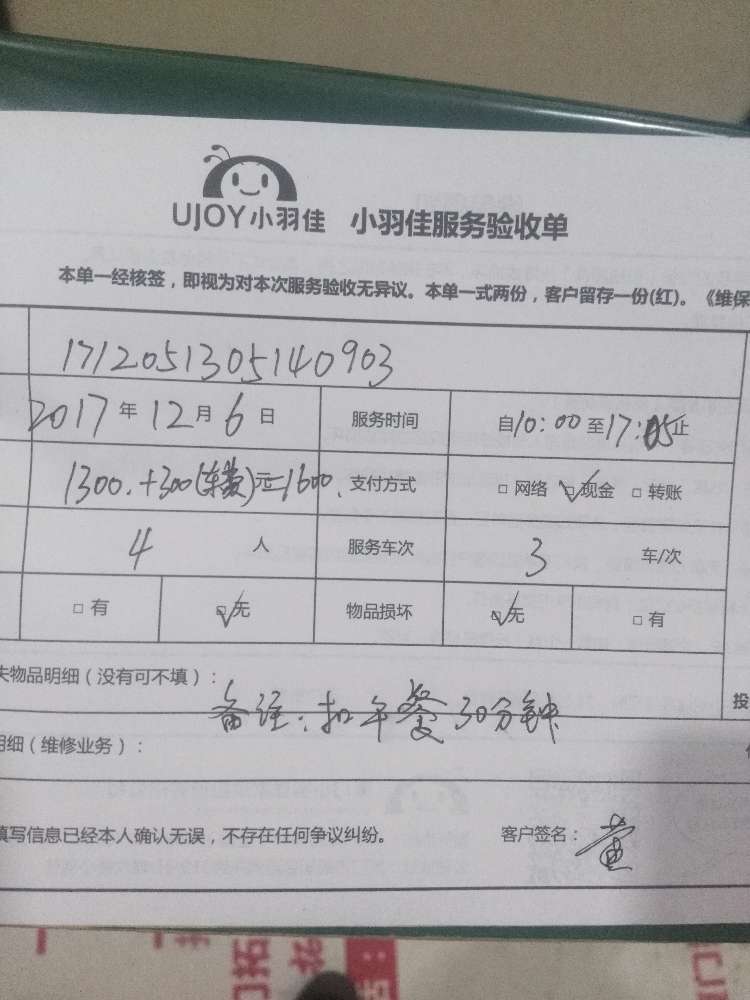 UJOY小羽佳 小羽佳服务验收单
本单一经核签，即视为对本次服务验收无异议。本单一式两份，客户留存一份(红)。《维保
1712051305140903
2017年12月6日 服务时间 自10:00至17:05止
1300.+300(车费)元=1600. 支付方式 □网络 ☑现金 □转账
4人 服务车次 3车/次
□有 ☑无 物品损坏 ☑无 □有
失物品明细（没有可不填）：
备注：扣午餐30分钟
投
明细（维修业务）：
填写信息已经本人确认无误，不存在任何争议纠纷。 客户签名：